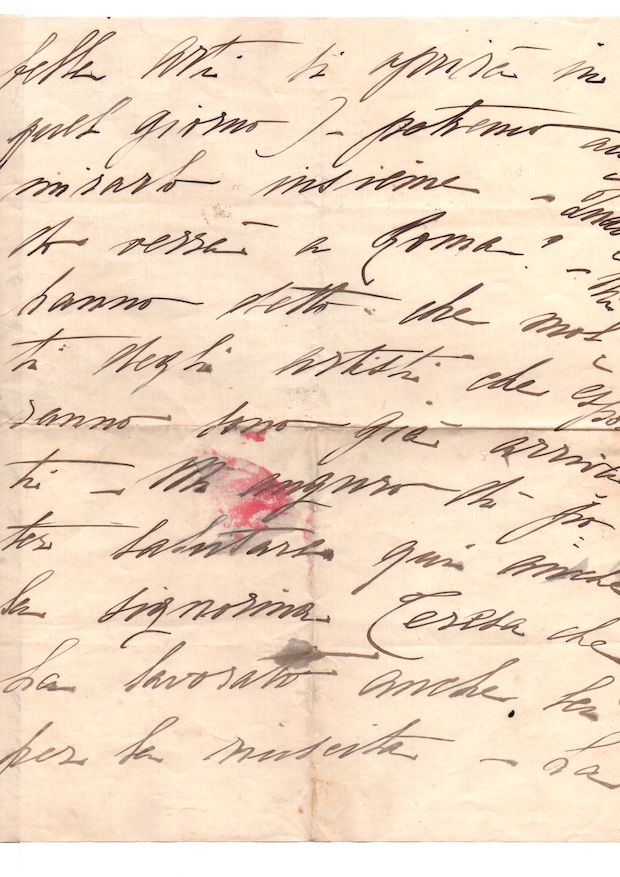 belle arti si aprirà in
quel giorno) - potremo am
mirarlo insieme - Quan
do verrà a Roma? - Mi
hanno detto che mol
ti degli artisti che espo
ranno sono già arriva
ti - Mi auguro di po
ter salutare qui anche
la signorina Teresa che
ha lavorato anche lei
per la riuscita - La